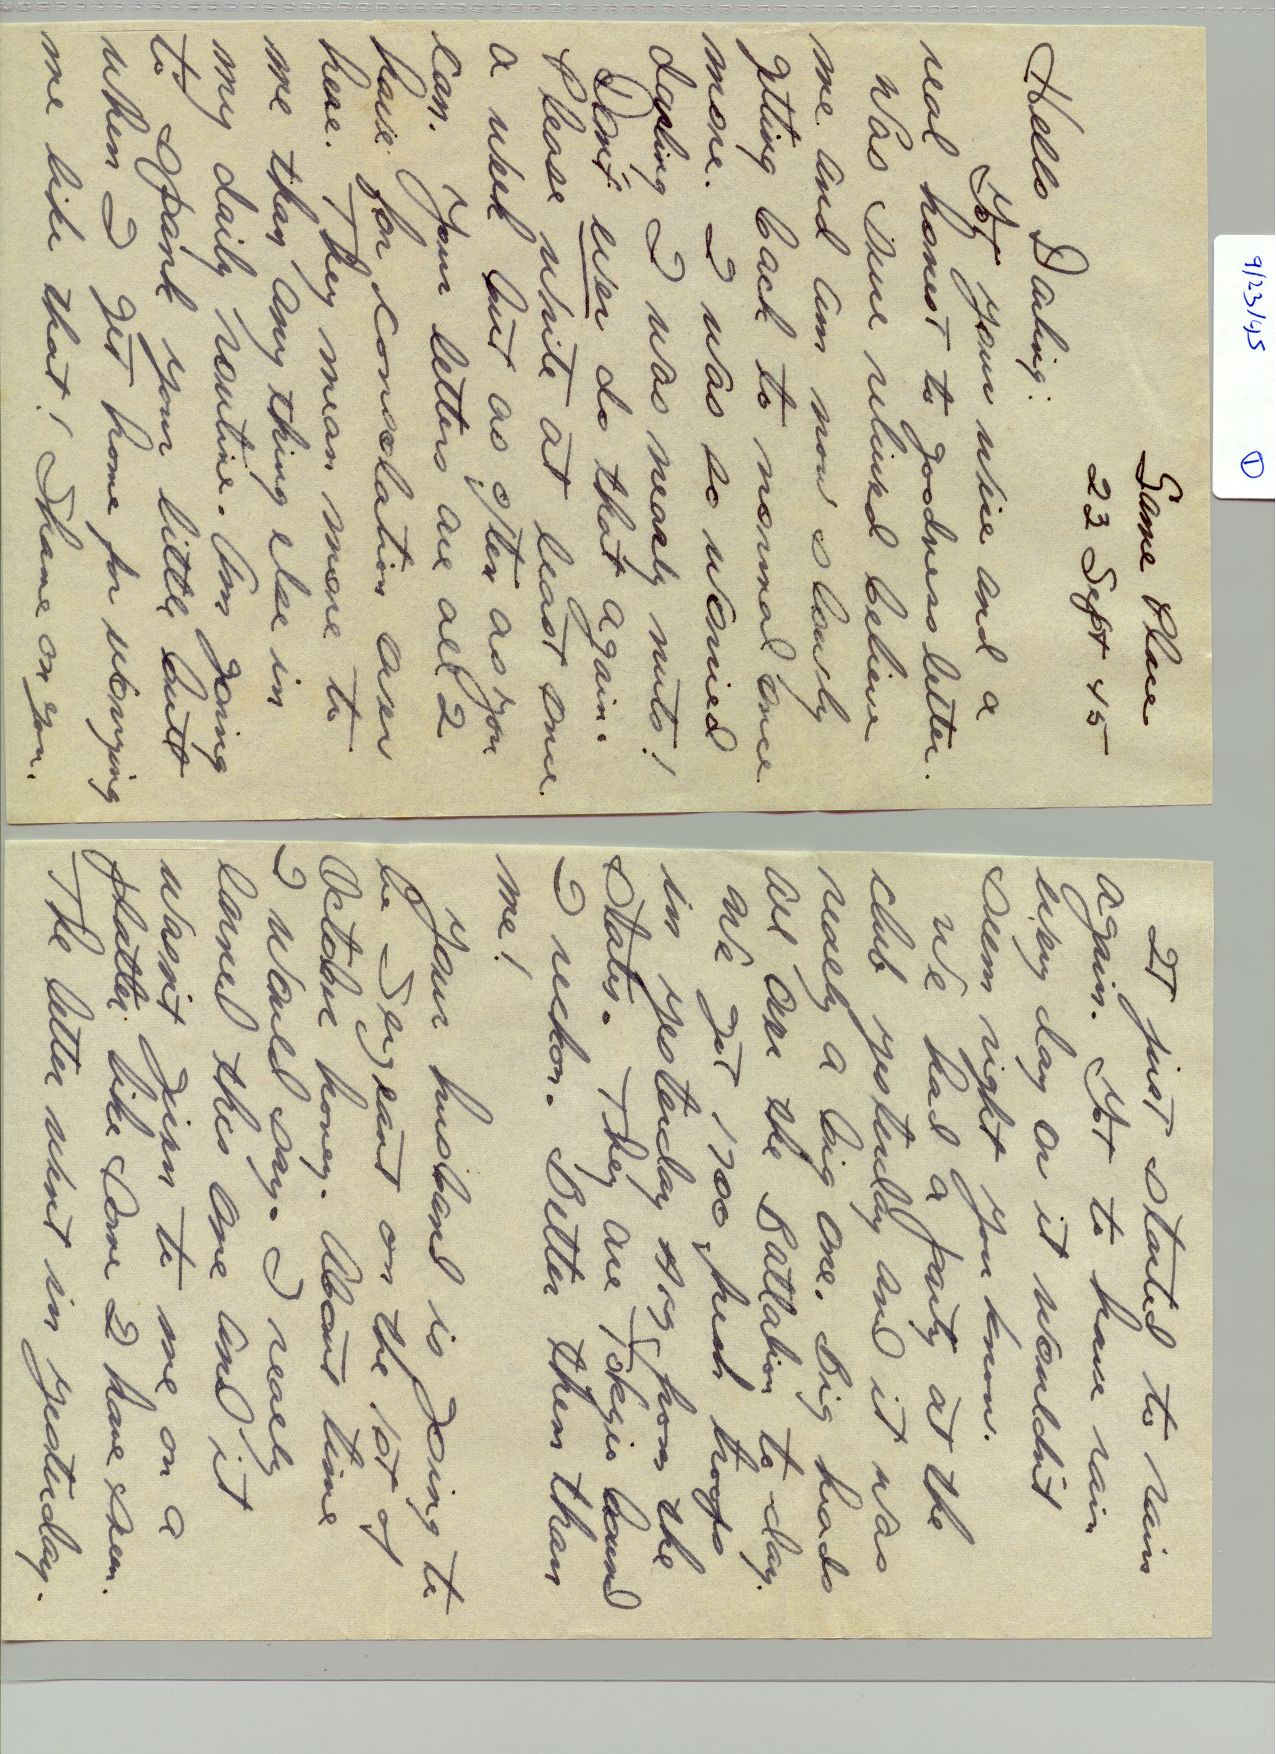 9/23/45 1
Same Place
23 Sept 45
Hello Darling:
Got your nice and a
real honest to goodness letter.
Was sure relieved believe
me and am now slowly
getting back to normal once
more. I was so worried
darling I was nearly nuts!
Don't ever do that again.
Please write at least one
a week but as often as you
can. Your letters are all I
have for consolation over
here. They mean more to
me than any thing else in
my daily routine. Am going
to spank your little butt
when I get home for worrying
me like that! Shame on you.
It just started to rain
again. Got to have rain
every day or it wouldn't
seem right you know.
We had a party at the
club yesterday and it was
really a big one. Big heads
all over the Battalion to day.
We got 1700 fresh troops
in yesterday from the
States. They are Tokyo bound
I reckon. Better them than
me!
Your husband is going to
be Sergeant on the 1st of
October honey. About time
I would say. I really
earned this one and it
wasn't given to me on a
platter like some I have seen.
The letter went in yesterday.